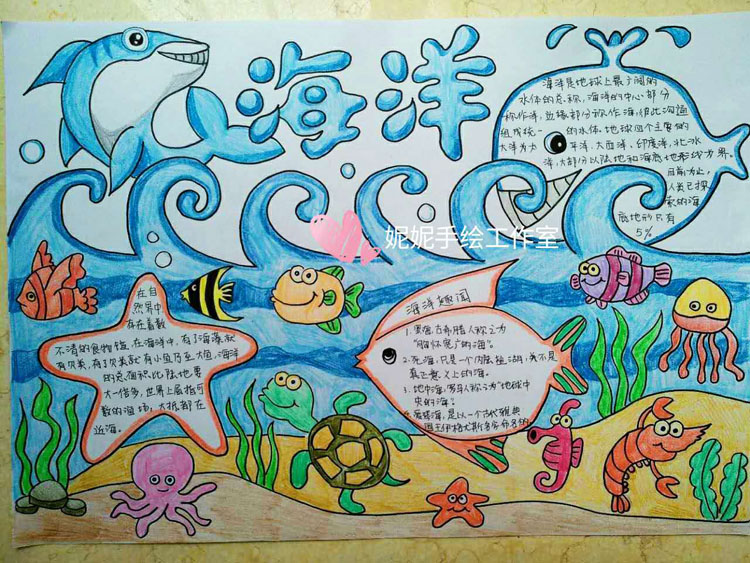 海洋
海洋是地球上最广阔的
水体的总称，海洋的中心部分
称作洋，边缘部分称作海，彼此沟通
组成统一的水体。地球四个主要的
大洋为太平洋、大西洋、印度洋、北冰
洋，大部分以陆地和海底地形线为界。
目前为止，
人类已探
索的海
底地形只有
5%
妮妮手绘工作室
在自
然界中
存在着数
不清的食物链，在海洋中，有了海藻就
有贝类，有了贝类就有小鱼乃至大鱼，海洋
的总面积比陆地要
大一倍多，世界上屈指可
数的渔场，大抵都在
近海。
海洋趣闻
1. 黑海，古希腊人称之为
"好客的海"。
2. 死海，只是一个内陆盐湖，并不是
真正意义上的海。
3. 地中海，罗马人称之为"地球中
央的海。
是以一个古代雅典
国王伊格尤斯名字命名的